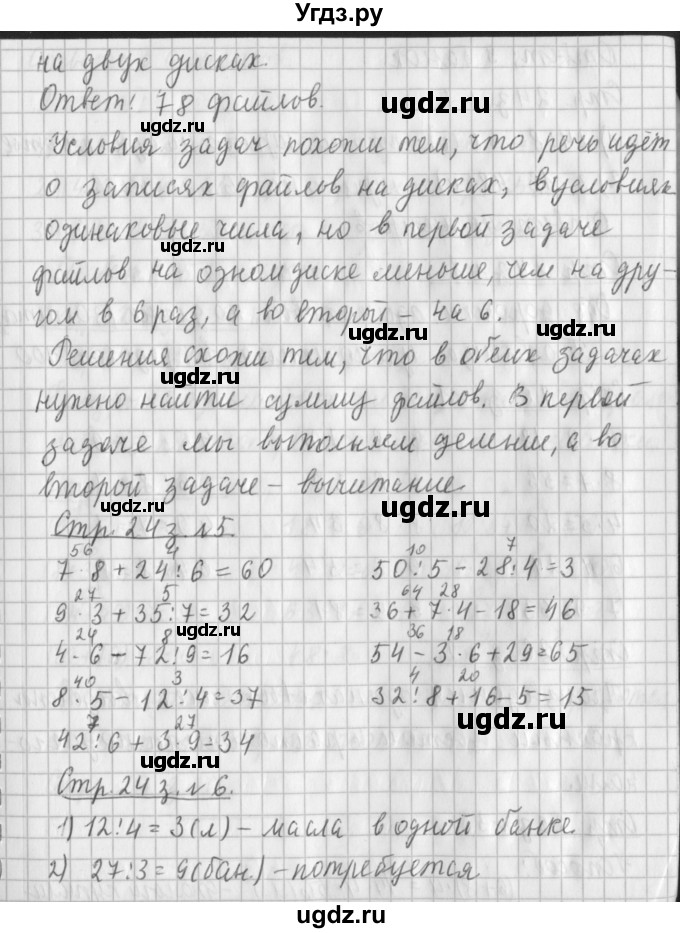 Угдз.ру
на двух дисках.
Ответ: 78 файлов.
ugdz.ru
ugdz.ru
Условия задач похожи тем, что речь идёт
о записях файлов на дисках, в условиях
одинаковые числа, но в первой задаче
ugdz.ru
ugdz.ru
файлов на одном диске меньше, чем на дру-
гом в 6 раз, а во второй – на 6.
ugdz.ru
ugdz.ru
Решения схожи тем, что в обеих задачах
ugdz.ru
нужно найти сумму файлов. В первой
ugdz.ru
задаче мы выполняем деление, а во
второй задаче – вычитание
ugdz.ru
ugdz.ru
Стр. 24 з. №5.
56 4
7·8+24:6=60
27 5
9·3+35:7=32
24 8
ugdz.ru
4·6-72:9=16
40 3
8·5-12:4=37
7 27
42:6+3·9=34
10 7
50:5-28:4=3
64 28
36+7·4-18=46
36 18
54-3·6+29=65
4 20
32:8+16-5=15
ugdz.ru
ugdz.ru
Стр. 24 з. №6.
1) 12:4=3(л) – масла в одной банке
2) 27:3=9(бан.) – потребуется
ugdz.ru
ugdz.ru